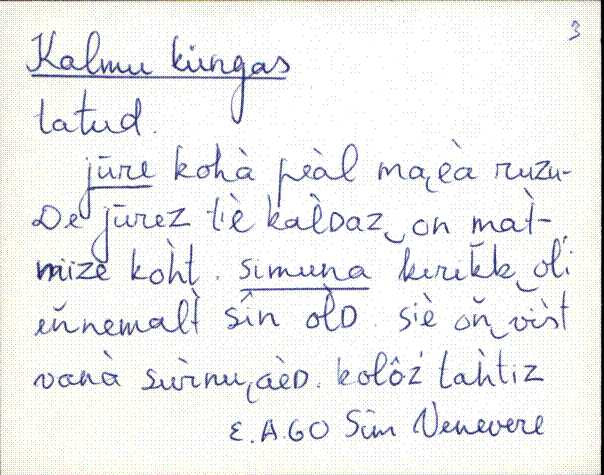 3
Kalmu küngas
tatud.
jūre kohà peàl mäeà ruzu-
De jūrez tiè kalDaz on màt-
mize kòht. simuna kirikk oli
eňnemalt sîn òlD. siè oň vìst
vanà surnu aèD. kolôž tahtiz
E. AGO Sim Venevere